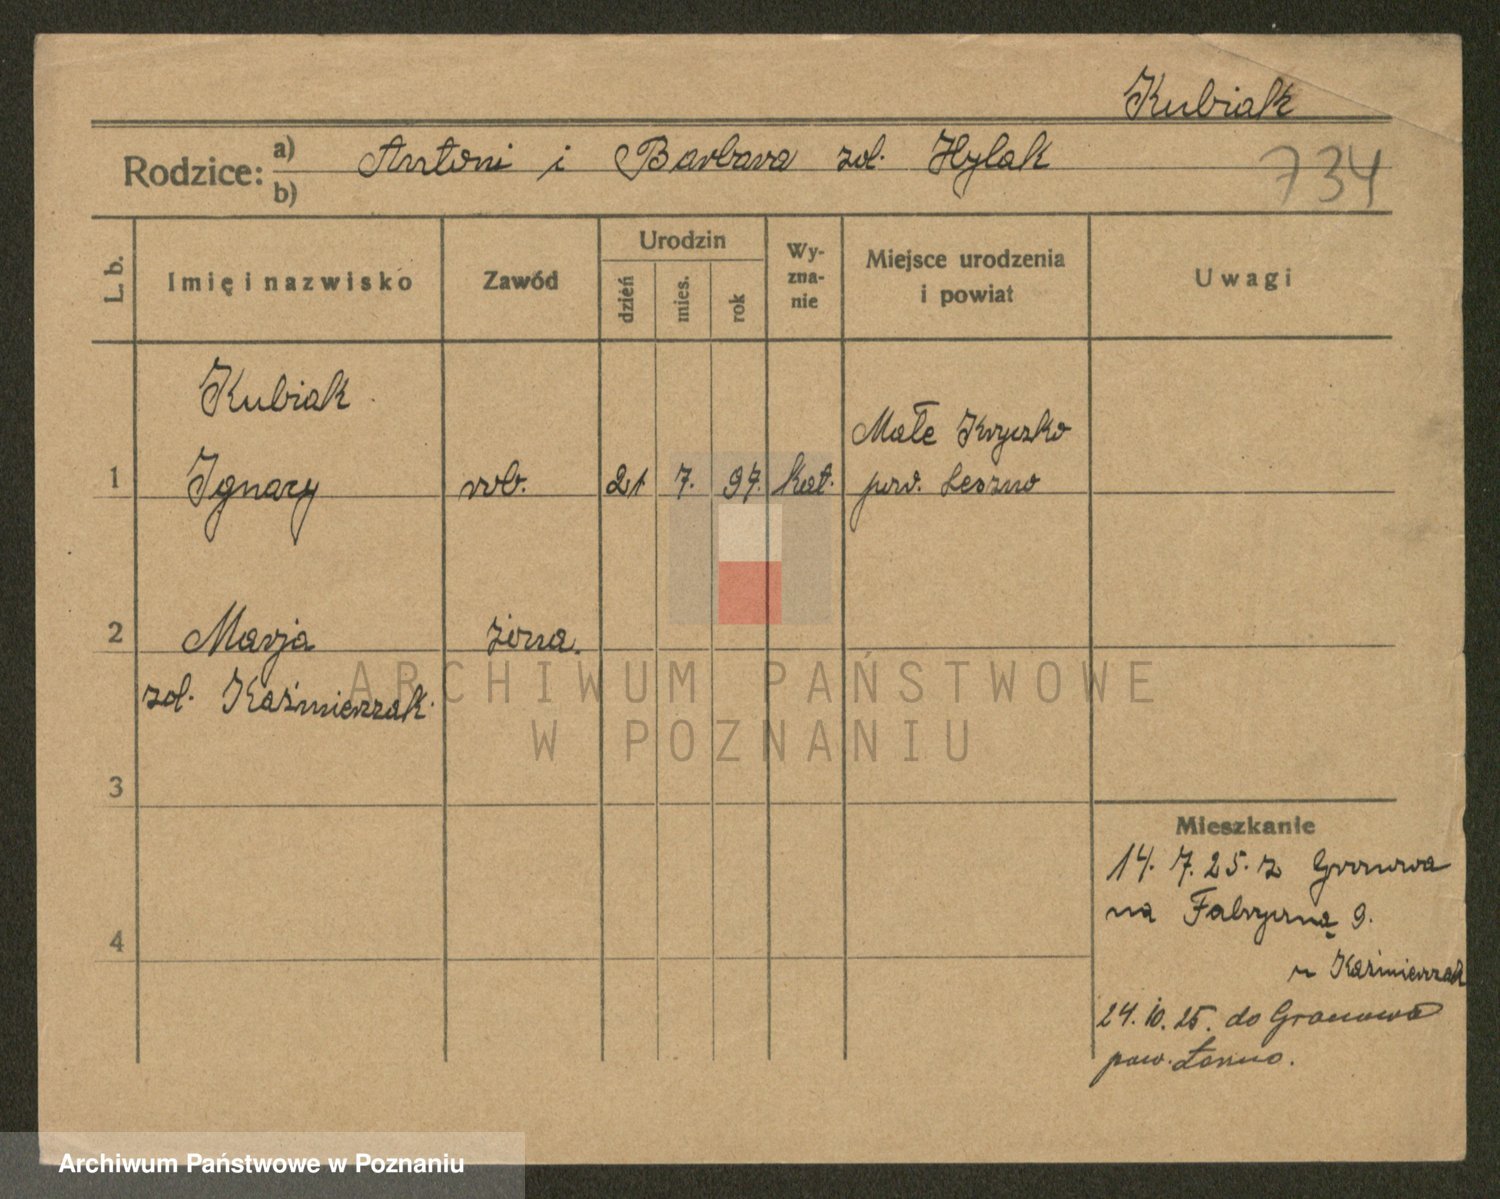 Kubiak
Rodzice: a) Antoni i Barbara zol. Hylak
b)
734
L. b.
Imię i nazwisko
Zawód
Urodzin
dzień
mies.
rok
Wy-
zna-
nie
Miejsce urodzenia
i powiat
Uwagi
Kubiak
1 Ignacy rob. 21 7. 97. kat.
Małe Kryczko
pow. Leszno
2 Marja żona.
zol. Kaźmierzak
3
4
Mieszkanie
14. 7. 25. z Gronowa
na Fabryczną 9.
u Kaźmierzak
24. 10. 25. do Gronowa
pow.
ARCHIWUM PAŃSTWOWE
W POZNANIU
Archiwum Państwowe w Poznaniu